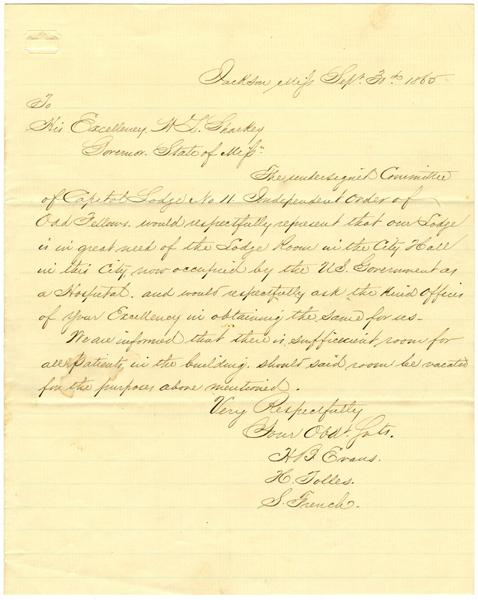 Jackson Miss Sept 30th 1865
To
His Excellency W L Sharkey
Governor State of Miss
The undersigned Committee
of Capitol Lodge No 11 Independent Order of
Odd Fellows would respectfully represent that our Lodge
is in great need of the Lodge Room in the City Hall
in this City now occupied by the U.S. Government as
a Hospital. and would respectfully ask the kind offices
of your Excellency in obtaining the same for us-
We are informed that there is sufficient room for
all Patients, in the building. should said room be vacated
for the purposes above mentioned.
Very Respectfully
Your Obdt. Svts.
H. Tolles.
S. French.